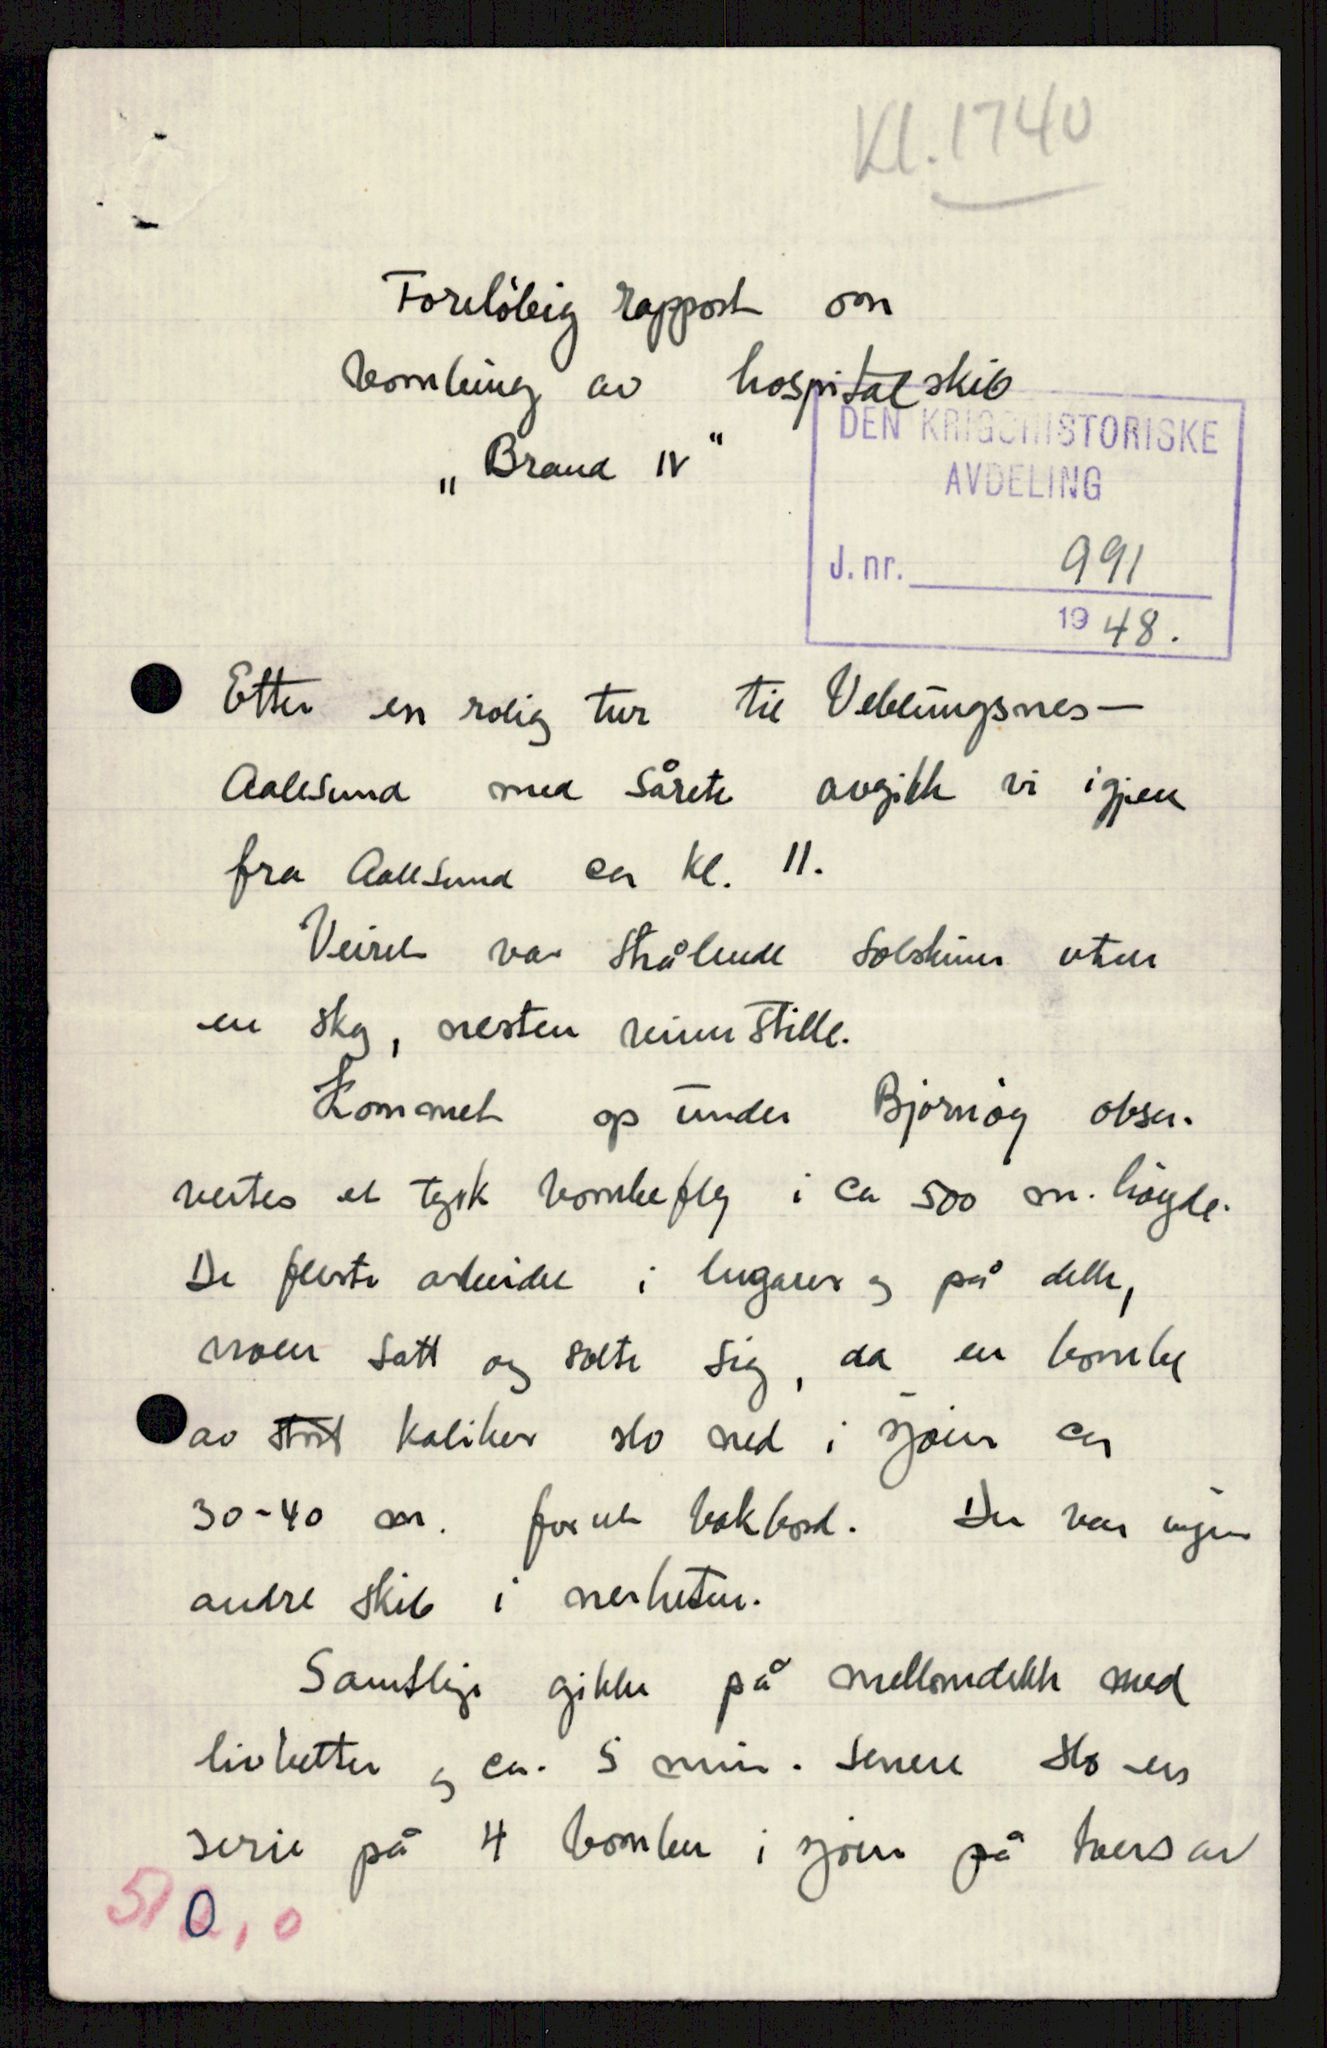 Kl. 1740
Foreløbig rapport om
bombing av hospitalskib
„Brand IV"
DEN KRIGSHISTORISKE
AVDELING
J. nr. 991
1948.
Efter en rolig tur til Veblungsnes—
Aalesund med sårete avgikk vi igjen
fra Aalesund ca kl. 11.
Veiret var strålende solskinn uten
en sky, nesten vinnstille.
Kommet op under Bjørnøy obser-
vertes et tysk bombefly i ca 500 m. høyde.
De fleste arbeidet i lugarer og på dekk,
noen satt og solte sig, da en bombe
av stort kaliber slo ned i sjøen ca
30-40 m. forut bakbord. Der var ingen
andre skib i nerheten.
Samtlige gikk på mellomdekk med
livbelter og ca. 5 min. senere slo en
serie på 4 bomber i sjøen på tvers av
510,0